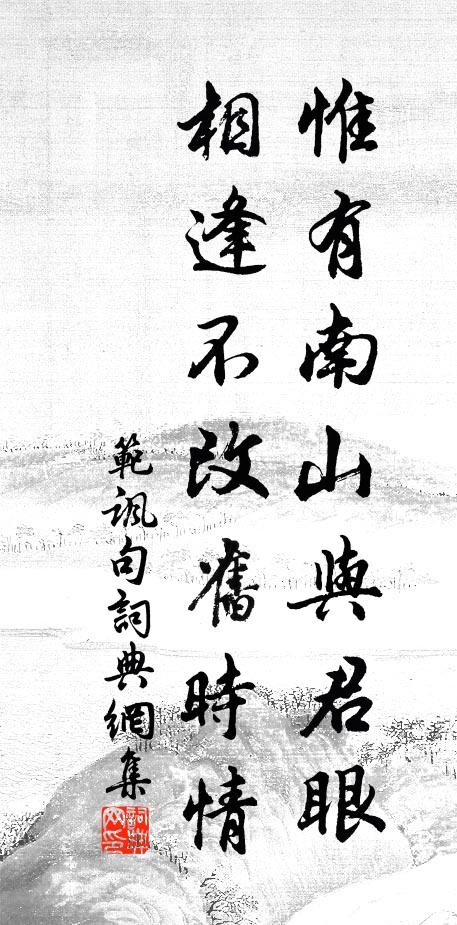 惟有南山與君眼
相逢不改舊時情
範諷句詞典網集
詞典网印